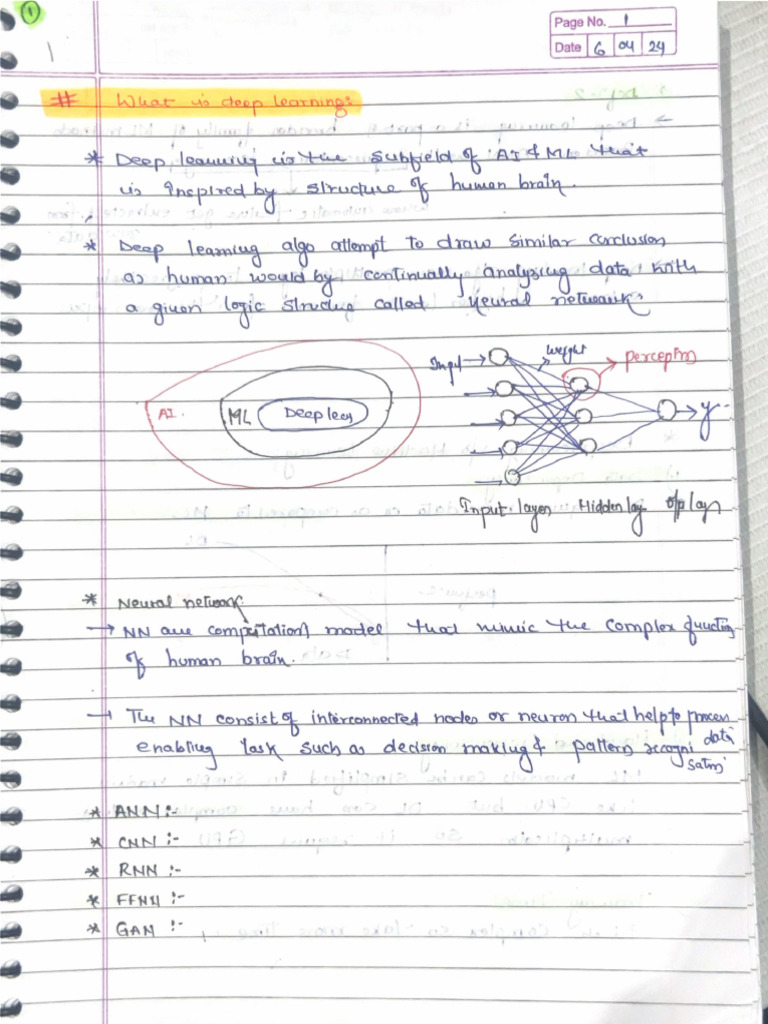 1
1
Page No. 1
Date 6 04 24
# What is deep learning:
* Deep learning is the subfield of AI & ML that
is inspired by structure of human brain.
* Deep learning algo attempt to draw similar conclusion
as human would by continually analysing data with
a given logic structure called neural network.
Input → weight → perceptron
AI. ML Deep learn → y
Input layer Hidden lay o/p layer
* Neural network:
→ NN are computation model that mimic the complex function
of human brain.
→ The NN consist of interconnected nodes or neuron that help to process data
enabling task such as decision making & pattern recogni
sation
* ANN :-
* CNN :-
* RNN :-
* FFNN :-
* GAN :-